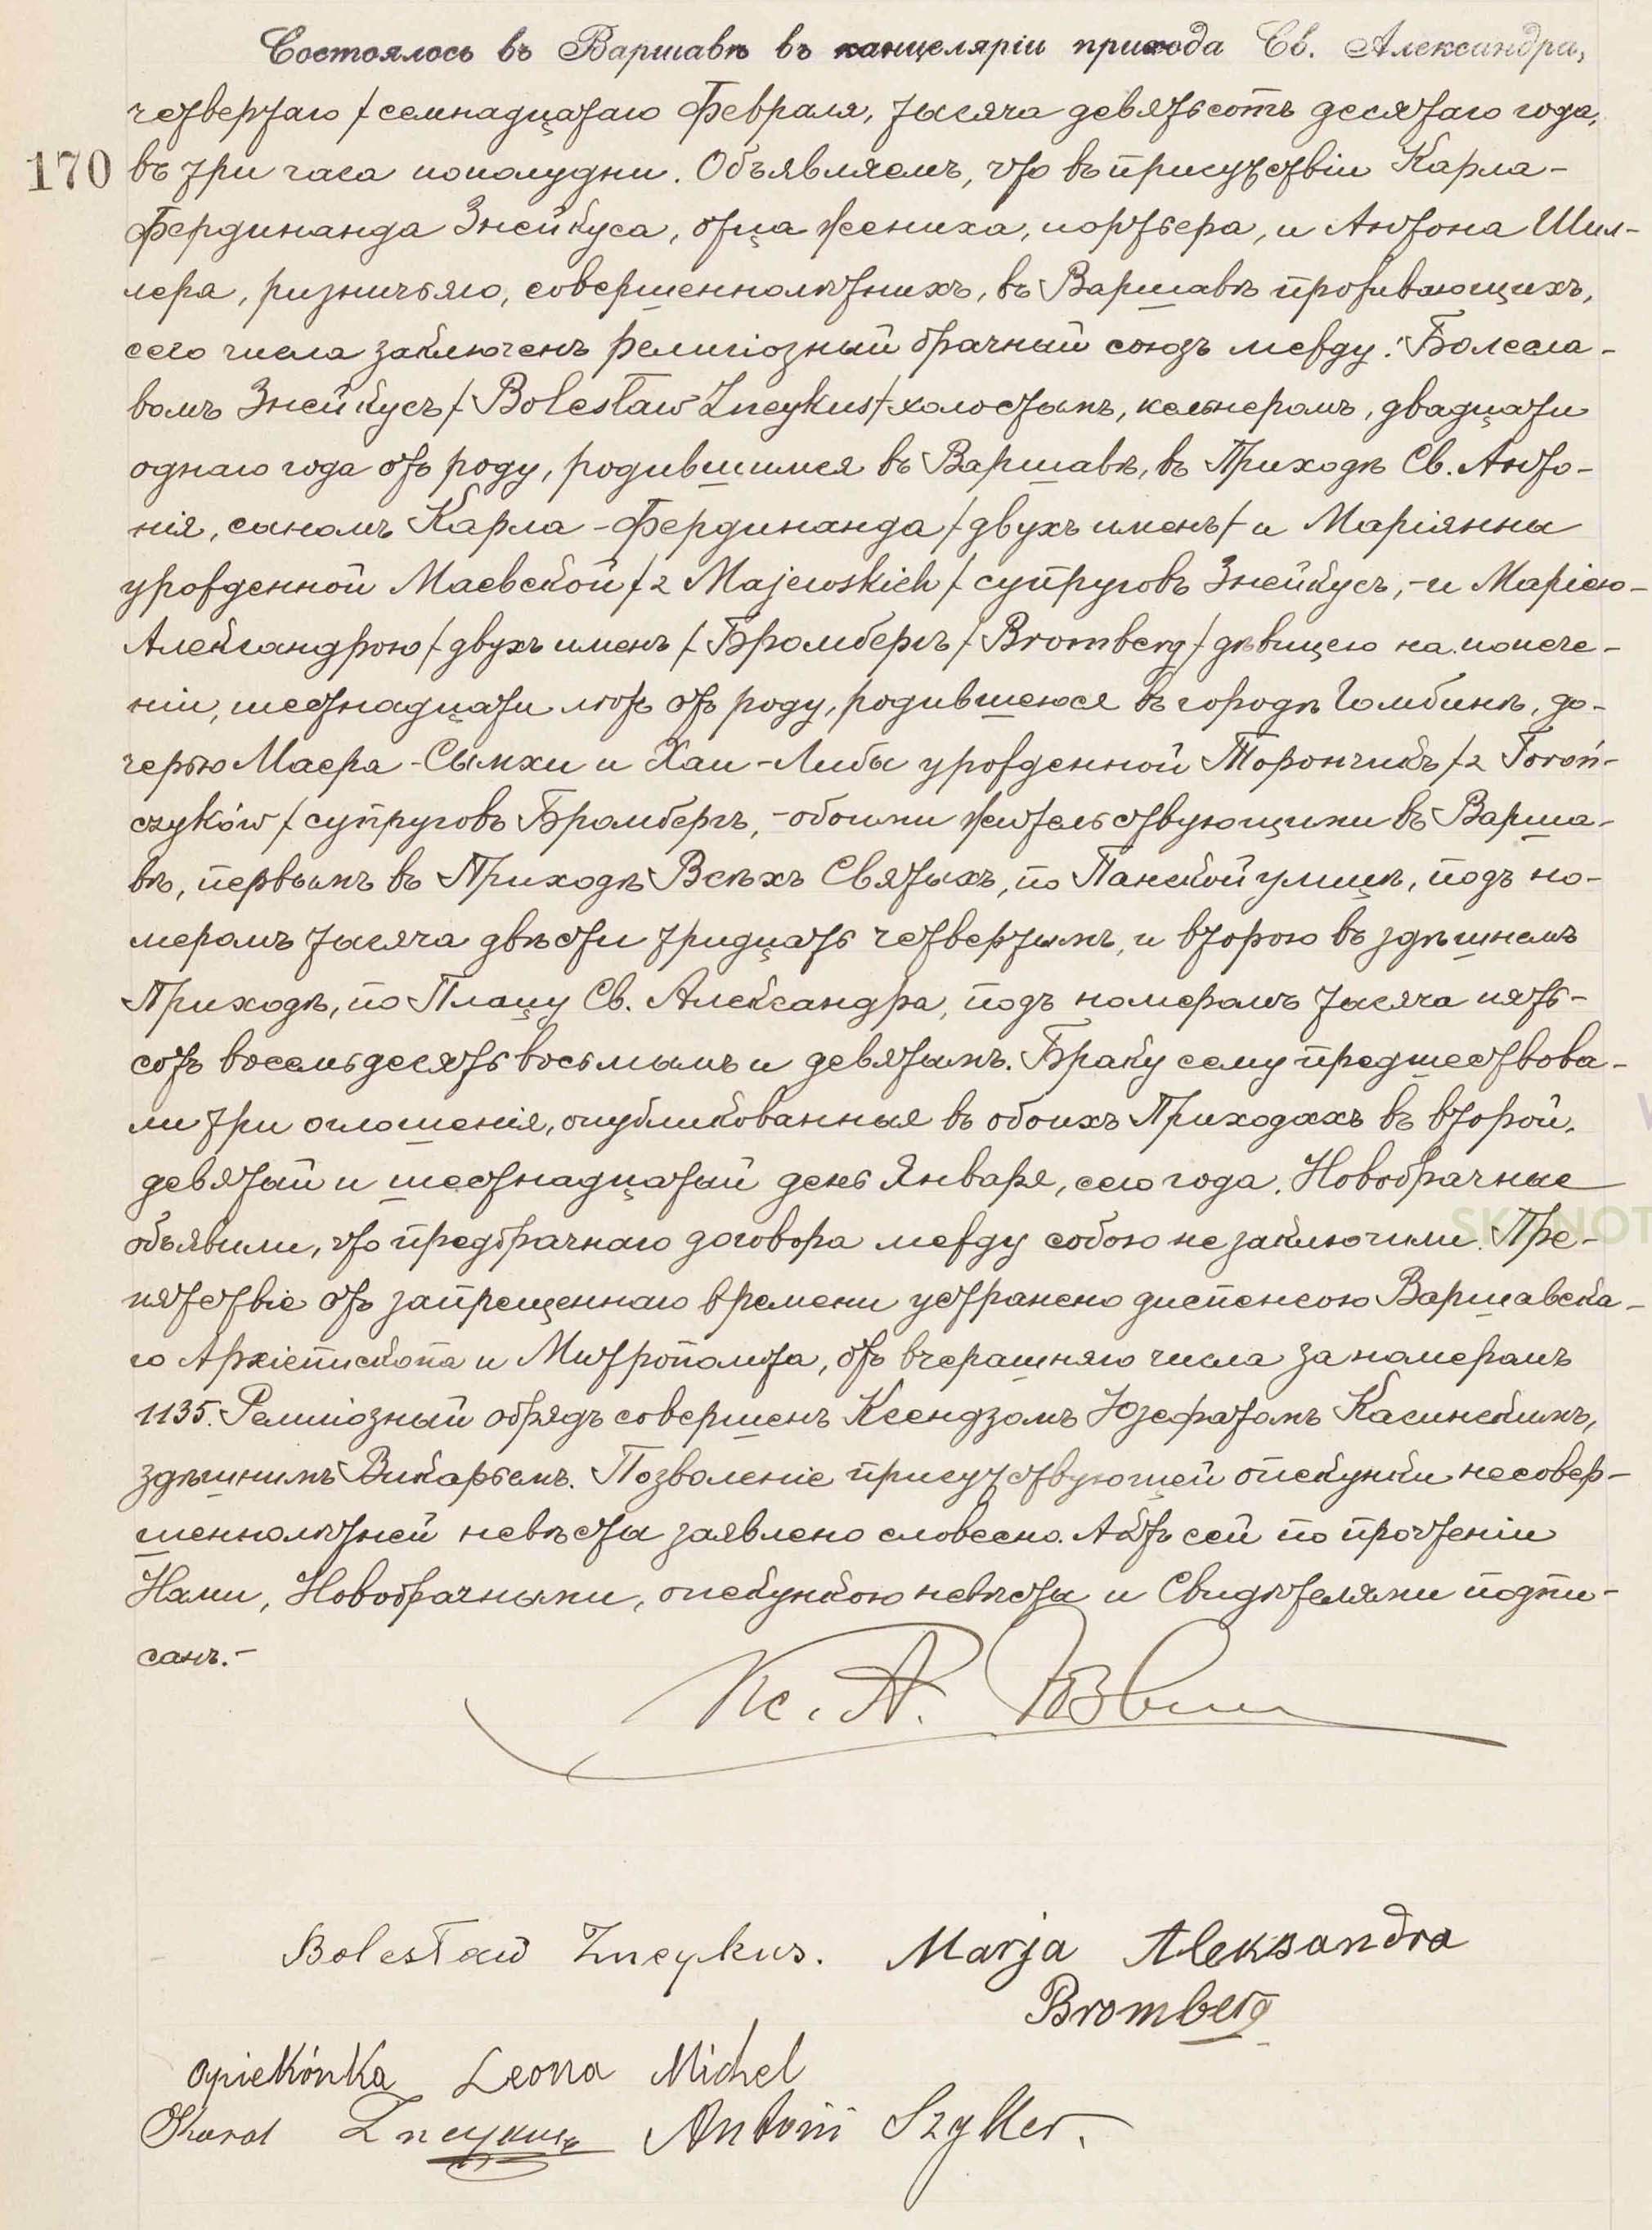 Состоялось въ Варшавѣ въ канцеляріи прихода Св. Александра,
четвертаго / семнадцатаго Февраля, тысяча девятьсотъ десятаго года,
170 въ три часа пополудни. Объявляемъ, что въ присутствіи Карла-
Фердинанда Знейкуса, отца жениха, портьера, и Антона Шил-
лера, ризничьяго, совершеннолѣтнихъ, въ Варшавѣ проживающихъ,
сего числа заключенъ религіозный брачный союзъ между: Болесла-
вомъ Знейкусъ / Bolesław Zneykus / холостымъ, кельнеромъ, двадцати
однаго года отъ роду, родившимся въ Варшавѣ, въ Приходѣ Св. Анто-
нія, сыномъ Карла-Фердинанда / двухъ именъ / и Маріянны
урожденной Маевской / z Majewskich / супруговъ Знейкусъ, - и Маріею-
Александрою / двухъ именъ / Бромбергъ / Bromberg / дѣвицею на попече-
ніи, шестнадцати лѣтъ отъ роду, родившеюся въ городѣ Гомбинѣ, до-
черью Маера-Сымхи и Хаи-Либы урожденной Торончикъ / z Toroń-
czyków / супруговъ Бромбергъ, - обоими жительствующими въ Варша-
вѣ, первымъ въ Приходѣ Всѣхъ Святыхъ, по Панской улицѣ, подъ но-
меромъ тысяча двѣсти тридцать четвертымъ, и второю въ здѣшнемъ
Приходѣ, по Плацу Св. Александра, подъ номеромъ тысяча пять-
сотъ восемьдесятъ восьмымъ и девятымъ. Браку сему предшествова-
ли три оглошенія, опубликованныя въ обоихъ Приходахъ въ второй,
девятый и шестнадцатый день Января, сего года. Новобрачные
объявили, что предбрачнаго договора между собою не заключили. Пре-
пятствіе отъ запрещеннаго времени устранено диспенсою Варшавска-
го Архіепископа и Митрополита, отъ вчерашняго числа за номеромъ
1135. Религіозный обрядъ совершенъ Ксендзомъ Юзефатомъ Касинскимъ,
здѣшнимъ Викарьемъ. Позволеніе присутствующей опекунки несовер-
шеннолѣтней невѣсты заявлено словесно. Актъ сей по прочтеніи
Нами, Новобрачными, опекункою невѣсты и Свидѣтелями подпи-
санъ.-
Кс. А.
Bolesław Zneykus. Marja Aleksandra
Bromberg
opiekónka Leona Michel
Karol Zneykus Antoni Szyller.